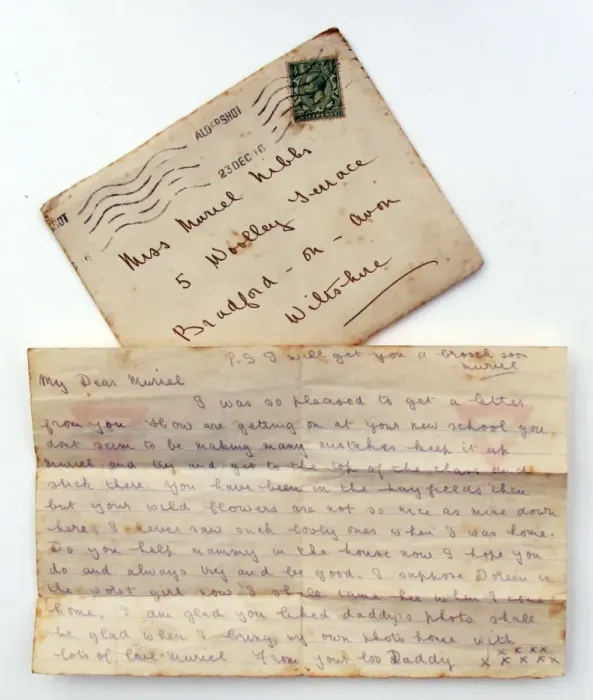 ALDERSHOT
23 DEC 16
Miss Muriel Nibbs
5 Woolley Terrace
Bradford - on - Avon
Wiltshire
P.S I will get you a broach soon
muriel
My Dear Muriel
I was so pleased to get a letter
from you How are getting on at your new school you
dont seem to be making many mistakes keep it up
muriel and try and get to the top of the class and
stick there. You have been in the hayfields then
but your wild flowers are not so nice as mine down
here, I never saw such lovly ones when I was home.
Do you help mammy in the house now I hope you
do and always try and be good. I suppose Doreen is
the worst girl now I shall tame her when I come
home. I am glad you liked daddys photo shall
be glad when I bring my own photo home with
lots of love muriel From your loo Daddy x x x x x x x x x